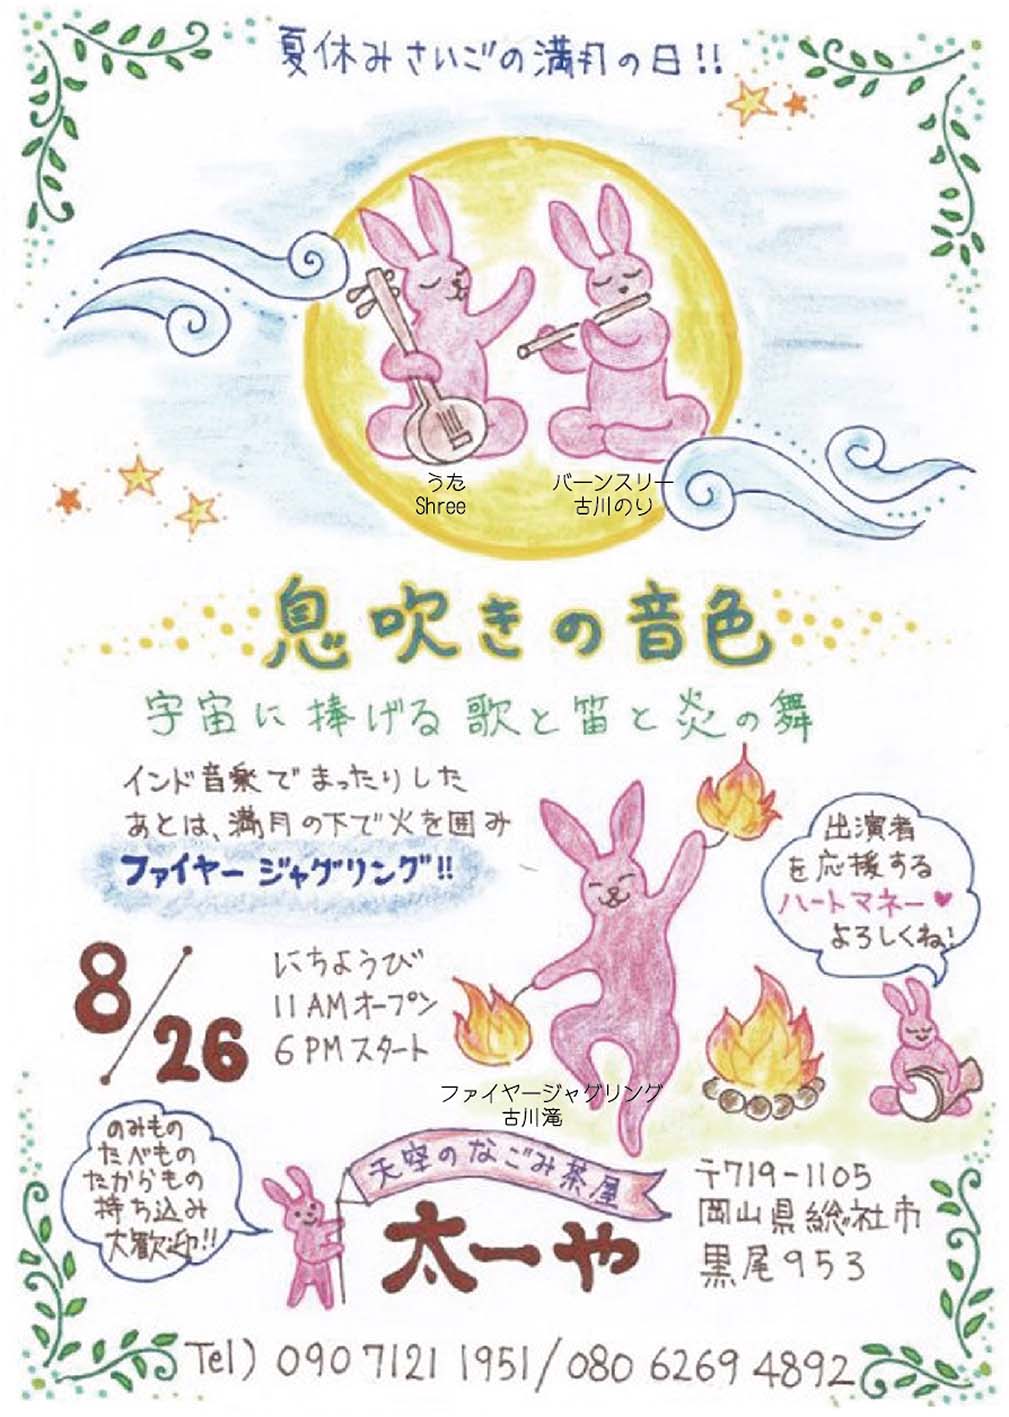 夏休みさいごの満月の日!!
うた
Shree
バーンスリー
古川のり
息吹きの音色
宇宙に捧げる歌と笛と炎の舞
インド音楽でまったりした
あとは、満月の下で火を囲み
ファイヤージャグリング!!
出演者
を応援する
ハートマネー♥
よろしくね!
8/26
にちようび
11AMオープン
6PMスタート
ファイヤージャグリング
古川滝
のみもの
たべもの
たからもの
持ち込み
大歓迎!!
天空のなごみ茶屋
太一や
〒719-1105
岡山県総社市
黒尾953
Tel) 090 7121 1951/080 6269 4892